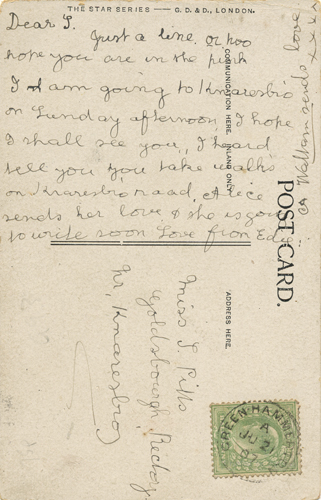 THE STAR SERIES — G. D. & D., LONDON.
Dear S.
Just a line or too
hope you are in the pink
I am going to Knaresbro
on Sunday afternoon I hope
I shall see you, I heard
tell you you take walks
on Knaresbro road. Alice
sends her love & she is going
to write soon Love from Edie
sends love
x x x x
COMMUNICATION HERE. INLAND ONLY.
POST CARD.
ADDRESS HERE.
Miss S. Pitts
Goldsbourgh Rectory
Nr, Knaresbro
GREEN HAMMERTON
A
JU 2